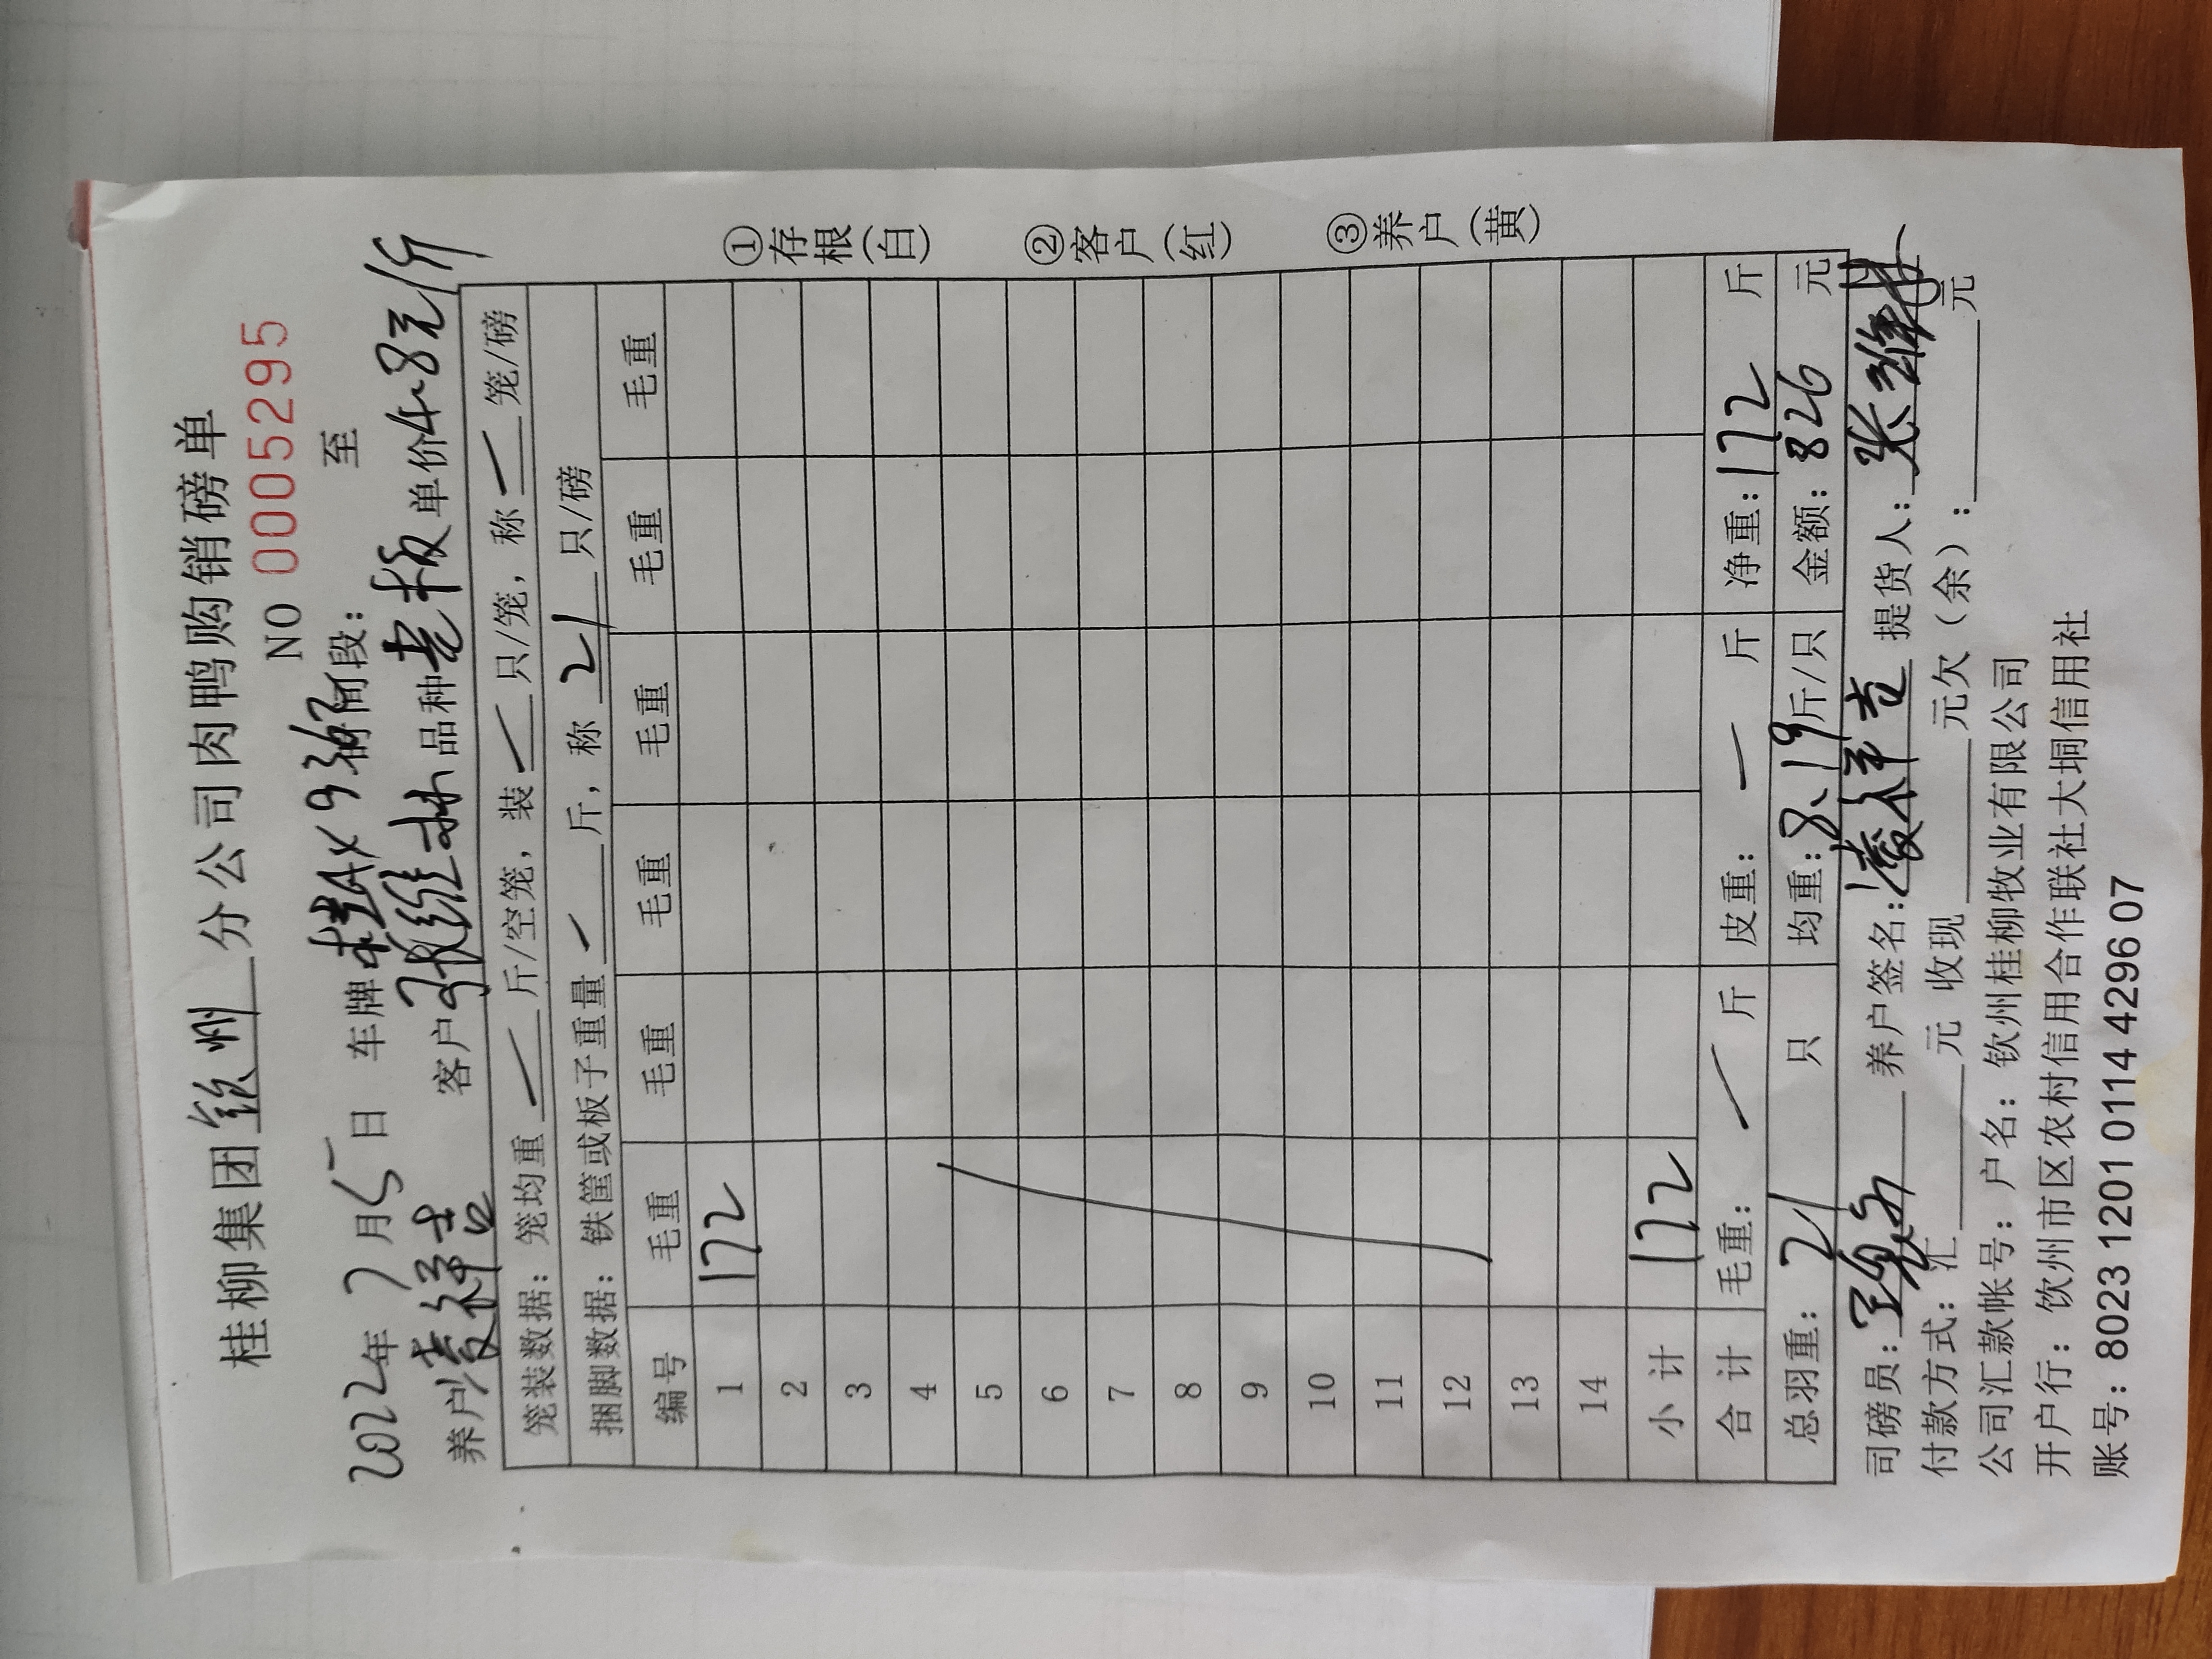 桂柳集团钦州分公司肉鸭购销磅单
NO 0005295
2022年7月5日 车牌桂A 时间段: 至
养户凌祥吉 客户张维 品种老板单价4.8元/斤
笼装数据: 笼均重 — 斤/空笼, 装 — 只/笼, 称 — 笼/磅
捆脚数据: 铁筐或板子重量 — 斤, 称 21 只/磅
编号 毛重 毛重 毛重 毛重 毛重 毛重
1 172
2
3
4
5
6
7
8
9
10
11
12
13
14
小计 172
合计 毛重: — 斤 皮重: — 斤 净重: 172 斤
总羽重: 21 只 均重: 8.19斤/只 金额: 826 元
①存根(白)
②客户(红)
③养户(黄)
司磅员: 养户签名: 凌祥吉 提货人: 张维
付款方式: 汇 元 收现 元欠(余): 元
公司汇款帐号: 户名: 钦州桂柳牧业有限公司
开户行: 钦州市区农村信用合作联社大垌信用社
账号: 8023 1201 0114 4296 07